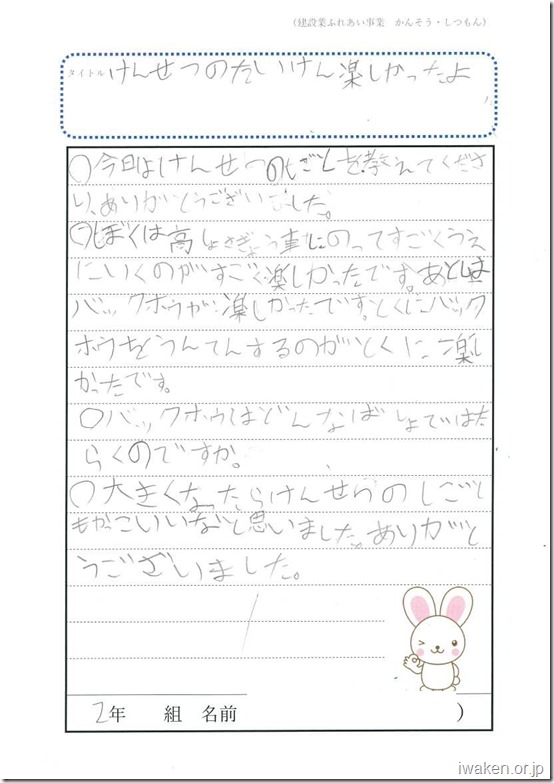 (建設業ふれあい事業 かんそう・しつもん)
タイトル けんせつのたいけん楽しかったよ
○今日はけんせつのしごとを教えてくださ
り、ありがとうございました。
○ぼくは高しょさぎょう車にのってすごくうえ
にいくのがすごく楽しかったです。あとは
バックホウが楽しかったです。とくにバック
ホウをうんてんするのがとくに楽し
かったです。
○バックホウはどんなばしょではた
らくのですか。
○大きくなったらけんせつのしごと
もかっこいいなと思いました。ありがと
うございました。
2年 組 名前 )
iwaken.or.jp